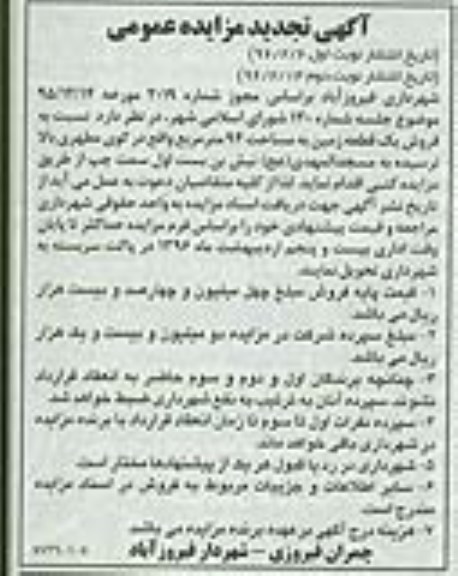 آگهی تجدید مزایده عمومی
(تاریخ انتشار نوبت اول ۹۶/۲/۶)
(تاریخ انتشار نوبت دوم ۹۶/۲/۱۳)
شهرداری فیروزآباد براساس مجوز شماره ۲۰۱۹ مورخه ۹۵/۱۲/۱۴
موضوع جلسه شماره ۱۳۰ شورای اسلامی شهر، در نظر دارد نسبت به
فروش یک قطعه زمین به مساحت ۹۶ مترمربع واقع در کوی مطهری بالا
نرسیده به مسجدالمهدی(عج) نبش بن بست اول سمت چپ از طریق
مزایده کتبی اقدام نماید. لذا از کلیه متقاضیان دعوت به عمل می آید از
تاریخ نشر آگهی جهت دریافت اسناد مزایده به واحد حقوقی شهرداری
مراجعه و قیمت پیشنهادی خود را براساس فرم مزایده حداکثر تا پایان
وقت اداری بیست و پنجم اردیبهشت ماه ۱۳۹۶ در پاکت سربسته به
شهرداری تحویل نمایند.
۱- قیمت پایه فروش مبلغ چهل میلیون و چهارصد و بیست هزار
ریال می باشد.
۲- مبلغ سپرده شرکت در مزایده دو میلیون و بیست و یک هزار
ریال می باشد.
۳- چنانچه برندگان اول و دوم و سوم حاضر به انعقاد قرارداد
نشوند سپرده آنان به ترتیب به نفع شهرداری ضبط خواهد شد.
۴- سپرده نفرات اول تا سوم تا زمان انعقاد قرارداد با برنده مزایده
در شهرداری باقی خواهد ماند.
۵- شهرداری در رد یا قبول هر یک از پیشنهادها مختار است.
۶- سایر اطلاعات و جزییات مربوط به فروش در اسناد مزایده
مندرج است.
۷- هزینه درج آگهی بر عهده برنده مزایده می باشد.
چمران فیروزی - شهردار فیروزآباد